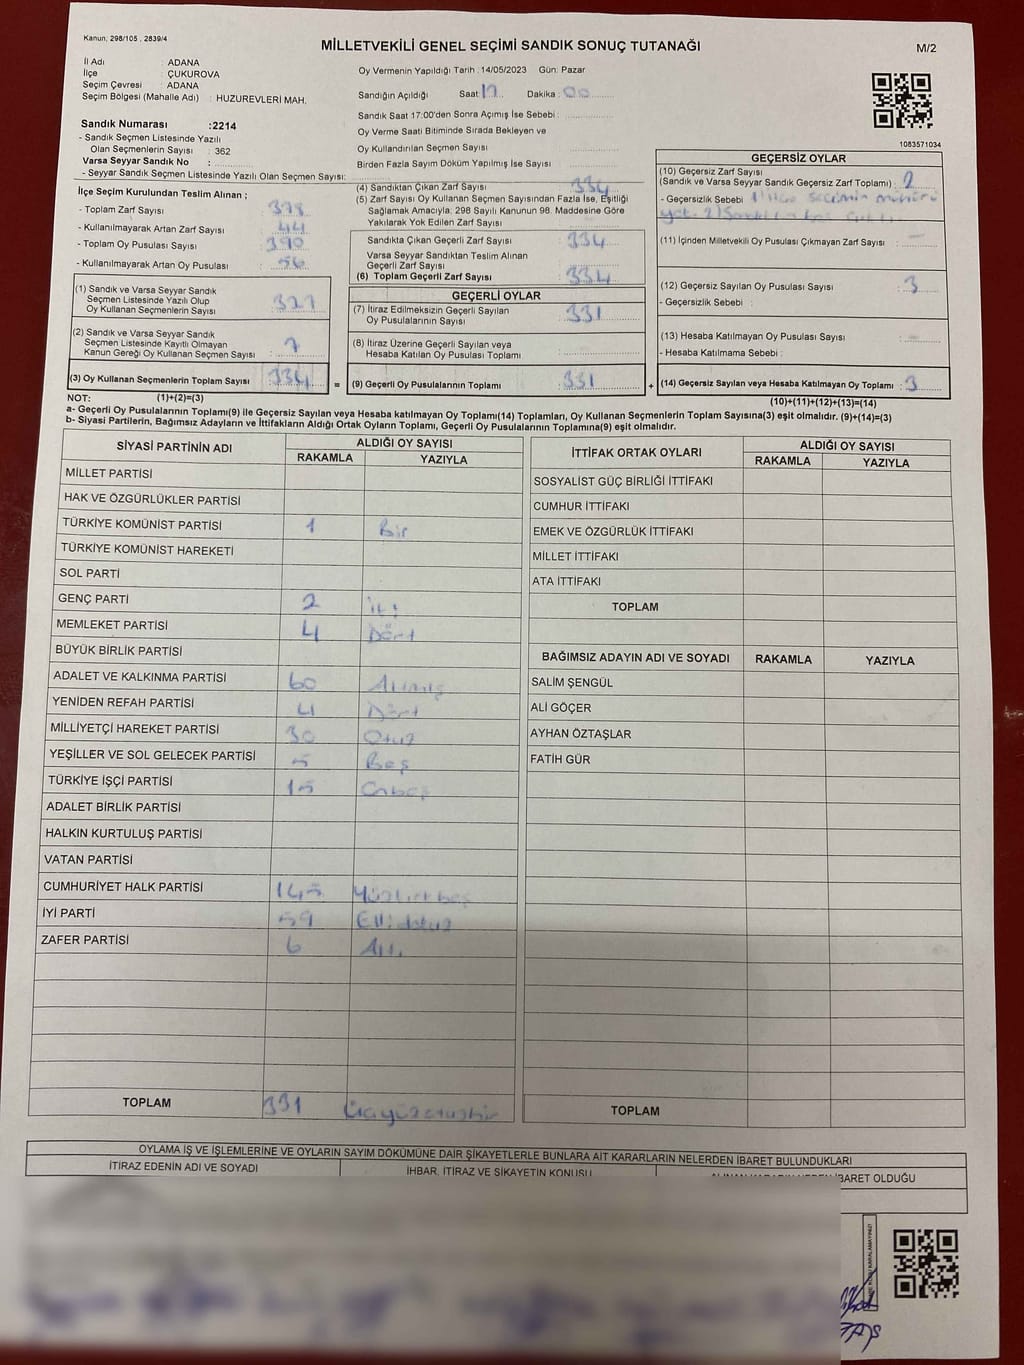 Kanun, 298/105 , 2839/4
MİLLETVEKİLİ GENEL SEÇİMİ SANDIK SONUÇ TUTANAĞI
M/2
İl Adı : ADANA
İlçe : ÇUKUROVA
Seçim Çevresi : ADANA
Seçim Bölgesi (Mahalle Adı) : HUZUREVLERİ MAH.
Sandık Numarası :2214
- Sandık Seçmen Listesinde Yazılı
Olan Seçmenlerin Sayısı : 362
Varsa Seyyar Sandık No :
- Seyyar Sandık Seçmen Listesinde Yazılı Olan Seçmen Sayısı:
Oy Vermenin Yapıldığı Tarih :14/05/2023 Gün: Pazar
Sandığın Açıldığı Saat: 17 Dakika : 00
Sandık Saat 17:00'den Sonra Açımış İse Sebebi :
Oy Verme Saati Bitiminde Sırada Bekleyen ve
Oy Kullandırılan Seçmen Sayısı :
Birden Fazla Sayım Döküm Yapılmış İse Sayısı :
1083571034
İlçe Seçim Kurulundan Teslim Alınan ;
- Toplam Zarf Sayısı : 378
- Kullanılmayarak Artan Zarf Sayısı : 44
- Toplam Oy Pusulası Sayısı : 390
- Kullanılmayarak Artan Oy Pusulası : 56
(1) Sandık ve Varsa Seyyar Sandık
Seçmen Listesinde Yazılı Olup
Oy Kullanan Seçmenlerin Sayısı : 327
(2) Sandık ve Varsa Seyyar Sandık
Seçmen Listesinde Kayıtlı Olmayan
Kanun Gereği Oy Kullanan Seçmen Sayısı : 7
(3) Oy Kullanan Seçmenlerin Toplam Sayısı : 334 =
(4) Sandıktan Çıkan Zarf Sayısı : 334
(5) Zarf Sayısı Oy Kullanan Seçmen Sayısından Fazla İse, Eşitliği
Sağlamak Amacıyla, 298 Sayılı Kanunun 98. Maddesine Göre
Yakılarak Yok Edilen Zarf Sayısı :
Sandıkta Çıkan Geçerli Zarf Sayısı : 334
Varsa Seyyar Sandıktan Teslim Alınan
Geçerli Zarf Sayısı :
(6) Toplam Geçerli Zarf Sayısı : 334
GEÇERLİ OYLAR
(7) İtiraz Edilmeksizin Geçerli Sayılan
Oy Pusulalarının Sayısı : 331
(8) İtiraz Üzerine Geçerli Sayılan veya
Hesaba Katılan Oy Pusulası Toplamı :
(9) Geçerli Oy Pusulalarının Toplamı : 331 +
GEÇERSİZ OYLAR
(10) Geçersiz Zarf Sayısı
(Sandık ve Varsa Seyyar Sandık Geçersiz Zarf Toplamı) :
- Geçersizlik Sebebi : seçimin mührü
(11) İçinden Milletvekili Oy Pusulası Çıkmayan Zarf Sayısı : -
(12) Geçersiz Sayılan Oy Pusulası Sayısı : 3
- Geçersizlik Sebebi :
(13) Hesaba Katılmayan Oy Pusulası Sayısı :
- Hesaba Katılmama Sebebi :
(14) Geçersiz Sayılan veya Hesaba Katılmayan Oy Toplamı : 3
NOT: (1)+(2)=(3) (10)+(11)+(12)+(13)=(14)
a- Geçerli Oy Pusulalarının Toplamı(9) ile Geçersiz Sayılan veya Hesaba katılmayan Oy Toplamı(14) Toplamları, Oy Kullanan Seçmenlerin Toplam Sayısına(3) eşit olmalıdır. (9)+(14)=(3)
b- Siyasi Partilerin, Bağımsız Adayların ve İttifakların Aldığı Ortak Oyların Toplamı, Geçerli Oy Pusulalarının Toplamına(9) eşit olmalıdır.
SİYASİ PARTİNİN ADI ALDIĞI OY SAYISI
RAKAMLA YAZIYLA
MİLLET PARTİSİ
HAK VE ÖZGÜRLÜKLER PARTİSİ
TÜRKİYE KOMÜNİST PARTİSİ 1 Bir
TÜRKİYE KOMÜNİST HAREKETİ
SOL PARTİ
GENÇ PARTİ 2 İki
MEMLEKET PARTİSİ 4 Dört
BÜYÜK BİRLİK PARTİSİ
ADALET VE KALKINMA PARTİSİ 60 Altmış
YENİDEN REFAH PARTİSİ 4 Dört
MİLLİYETÇİ HAREKET PARTİSİ 30 Otuz
YEŞİLLER VE SOL GELECEK PARTİSİ 5 Beş
TÜRKİYE İŞÇİ PARTİSİ 15 Onbeş
ADALET BİRLİK PARTİSİ
HALKIN KURTULUŞ PARTİSİ
VATAN PARTİSİ
CUMHURİYET HALK PARTİSİ 145 Yüzkırkbeş
İYİ PARTİ 59 Ellidokuz
ZAFER PARTİSİ 6 Altı
TOPLAM 331 Üçyüzotuzbir
İTTİFAK ORTAK OYLARI ALDIĞI OY SAYISI
RAKAMLA YAZIYLA
SOSYALİST GÜÇ BİRLİĞİ İTTİFAKI
CUMHUR İTTİFAKI
EMEK VE ÖZGÜRLÜK İTTİFAKI
MİLLET İTTİFAKI
ATA İTTİFAKI
TOPLAM
BAĞIMSIZ ADAYIN ADI VE SOYADI RAKAMLA YAZIYLA
SALİM ŞENGÜL
ALİ GÖÇER
AYHAN ÖZTAŞLAR
FATİH GÜR
TOPLAM
OYLAMA İŞ VE İŞLEMLERİNE VE OYLARIN SAYIM DÖKÜMÜNE DAİR ŞİKAYETLERLE BUNLARA AİT KARARLARIN NELERDEN İBARET BULUNDUKLARI
İTİRAZ EDENİN ADI VE SOYADI İHBAR, İTİRAZ VE ŞİKAYETİN KONUSU İBARET OLDUĞU